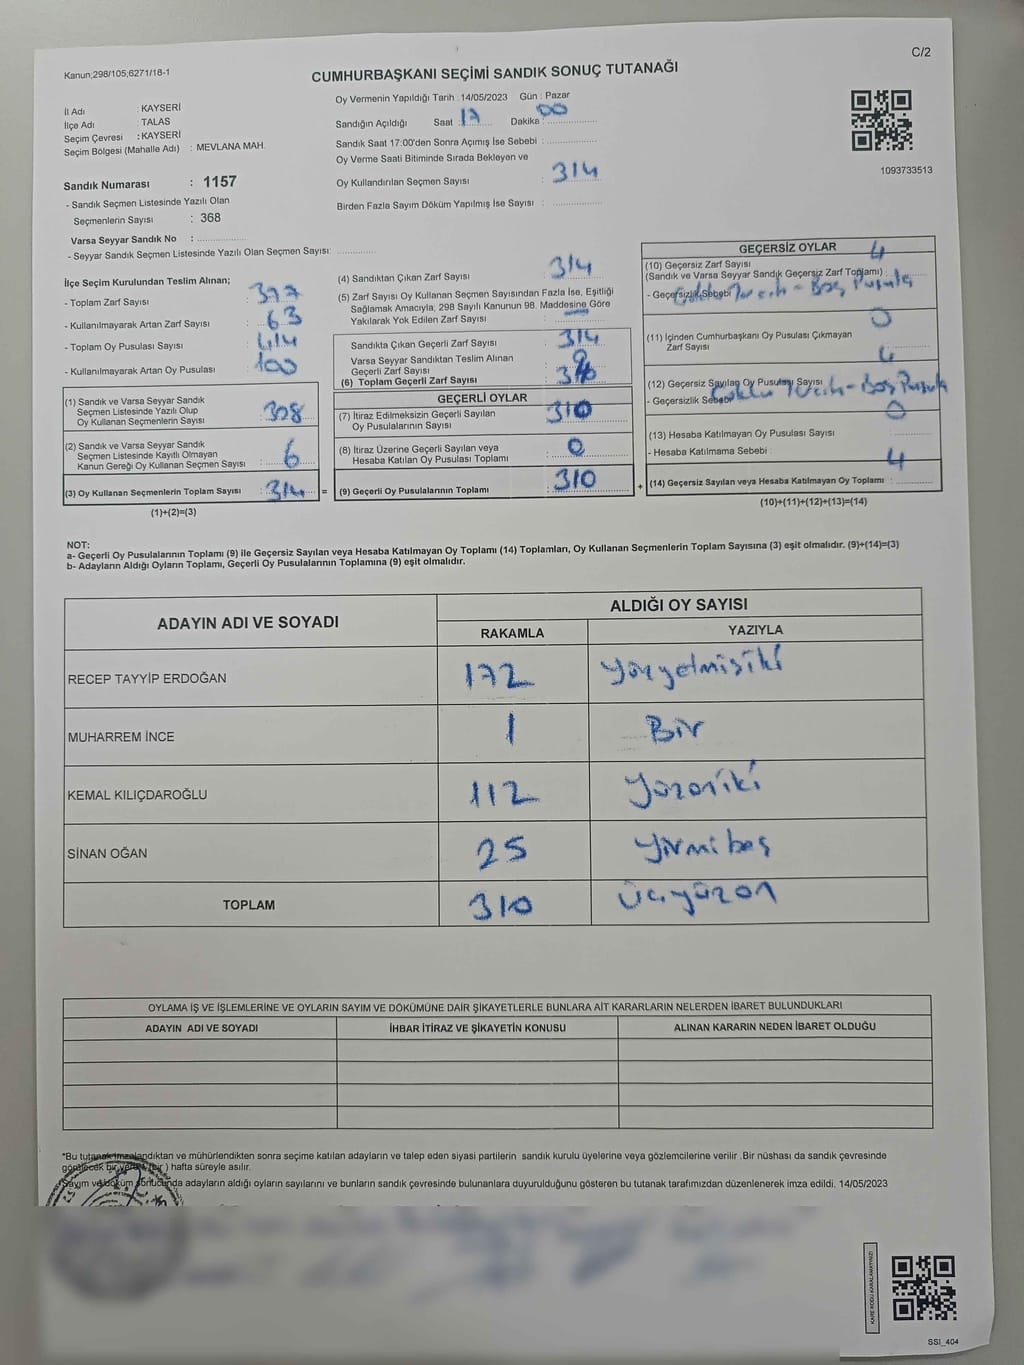 C/2
Kanun;298/105;6271/18-1
CUMHURBAŞKANI SEÇİMİ SANDIK SONUÇ TUTANAĞI
İl Adı : KAYSERİ
İlçe Adı : TALAS
Seçim Çevresi : KAYSERİ
Seçim Bölgesi (Mahalle Adı) : MEVLANA MAH.
Sandık Numarası : 1157
- Sandık Seçmen Listesinde Yazılı Olan
Seçmenlerin Sayısı : 368
Varsa Seyyar Sandık No :
- Seyyar Sandık Seçmen Listesinde Yazılı Olan Seçmen Sayısı:
Oy Vermenin Yapıldığı Tarih : 14/05/2023 Gün : Pazar
Sandığın Açıldığı Saat : 17 Dakika : 00
Sandık Saat 17:00'den Sonra Açımış İse Sebebi :
Oy Verme Saati Bitiminde Sırada Bekleyen ve
Oy Kullandırılan Seçmen Sayısı : 314
Birden Fazla Sayım Döküm Yapılmış İse Sayısı :
1093733513
İlçe Seçim Kurulundan Teslim Alınan;
- Toplam Zarf Sayısı : 377
- Kullanılmayarak Artan Zarf Sayısı : 63
- Toplam Oy Pusulası Sayısı : 414
- Kullanılmayarak Artan Oy Pusulası : 100
(1) Sandık ve Varsa Seyyar Sandık
Seçmen Listesinde Yazılı Olup
Oy Kullanan Seçmenlerin Sayısı : 308
(2) Sandık ve Varsa Seyyar Sandık
Seçmen Listesinde Kayıtlı Olmayan
Kanun Gereği Oy Kullanan Seçmen Sayısı : 6
(3) Oy Kullanan Seçmenlerin Toplam Sayısı : 314 =
(1)+(2)=(3)
(4) Sandıktan Çıkan Zarf Sayısı : 314
(5) Zarf Sayısı Oy Kullanan Seçmen Sayısından Fazla İse, Eşitliği
Sağlamak Amacıyla, 298 Sayılı Kanunun 98. Maddesine Göre
Yakılarak Yok Edilen Zarf Sayısı : —
Sandıkta Çıkan Geçerli Zarf Sayısı : 314
Varsa Seyyar Sandıktan Teslim Alınan
Geçerli Zarf Sayısı :
(6) Toplam Geçerli Zarf Sayısı :
GEÇERLİ OYLAR
(7) İtiraz Edilmeksizin Geçerli Sayılan
Oy Pusulalarının Sayısı : 310
(8) İtiraz Üzerine Geçerli Sayılan veya
Hesaba Katılan Oy Pusulası Toplamı : 0
(9) Geçerli Oy Pusulalarının Toplamı : 310 +
GEÇERSİZ OYLAR
(10) Geçersiz Zarf Sayısı 4
(Sandık ve Varsa Seyyar Sandık Geçersiz Zarf Toplamı) :
- Geçersizlik Sebebi : Boş Pusula
(11) İçinden Cumhurbaşkanı Oy Pusulası Çıkmayan 0
Zarf Sayısı
(12) Geçersiz Sayılan Oy Pusulası Sayısı 4
- Geçersizlik Sebebi : Boş Pusula
(13) Hesaba Katılmayan Oy Pusulası Sayısı 0
- Hesaba Katılmama Sebebi :
(14) Geçersiz Sayılan veya Hesaba Katılmayan Oy Toplamı : 4
(10)+(11)+(12)+(13)=(14)
NOT:
a- Geçerli Oy Pusulalarının Toplamı (9) ile Geçersiz Sayılan veya Hesaba Katılmayan Oy Toplamı (14) Toplamları, Oy Kullanan Seçmenlerin Toplam Sayısına (3) eşit olmalıdır. (9)+(14)=(3)
b- Adayların Aldığı Oyların Toplamı, Geçerli Oy Pusulalarının Toplamına (9) eşit olmalıdır.
ADAYIN ADI VE SOYADI
ALDIĞI OY SAYISI
RAKAMLA YAZIYLA
RECEP TAYYİP ERDOĞAN 172 Yüzyetmişiki
MUHARREM İNCE 1 Bir
KEMAL KILIÇDAROĞLU 112 Yüzoniki
SİNAN OĞAN 25 Yirmibeş
TOPLAM 310 Üçyüzon
OYLAMA İŞ VE İŞLEMLERİNE VE OYLARIN SAYIM VE DÖKÜMÜNE DAİR ŞİKAYETLERLE BUNLARA AİT KARARLARIN NELERDEN İBARET BULUNDUKLARI
ADAYIN ADI VE SOYADI İHBAR İTİRAZ VE ŞİKAYETİN KONUSU ALINAN KARARIN NEDEN İBARET OLDUĞU
*Bu tutanak imzalandıktan ve mühürlendikten sonra seçime katılan adayların ve talep eden siyasi partilerin sandık kurulu üyelerine veya gözlemcilerine verilir .Bir nüshası da sandık çevresinde
görülecek bir yere 1 (bir ) hafta süreyle asılır.
Sayım ve döküm sonucunda adayların aldığı oyların sayılarını ve bunların sandık çevresinde bulunanlara duyurulduğunu gösteren bu tutanak tarafımızdan düzenlenerek imza edildi. 14/05/2023
KARE KODU KARALAMAYINIZ!
SSI_404